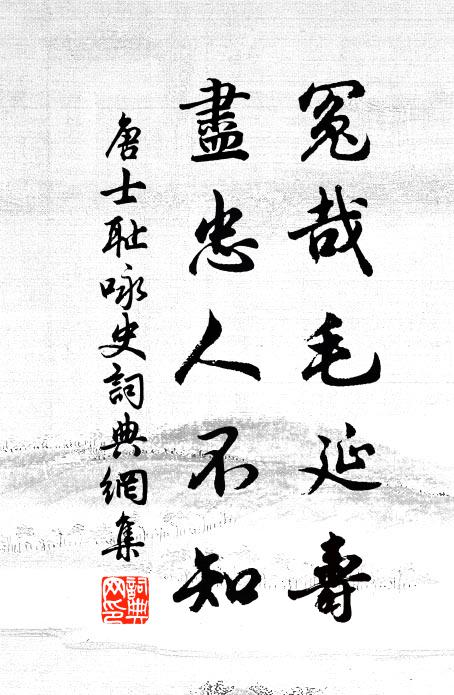 冤哉毛延壽
盡忠人不知
唐士耻咏史詞典網集
詞典网印